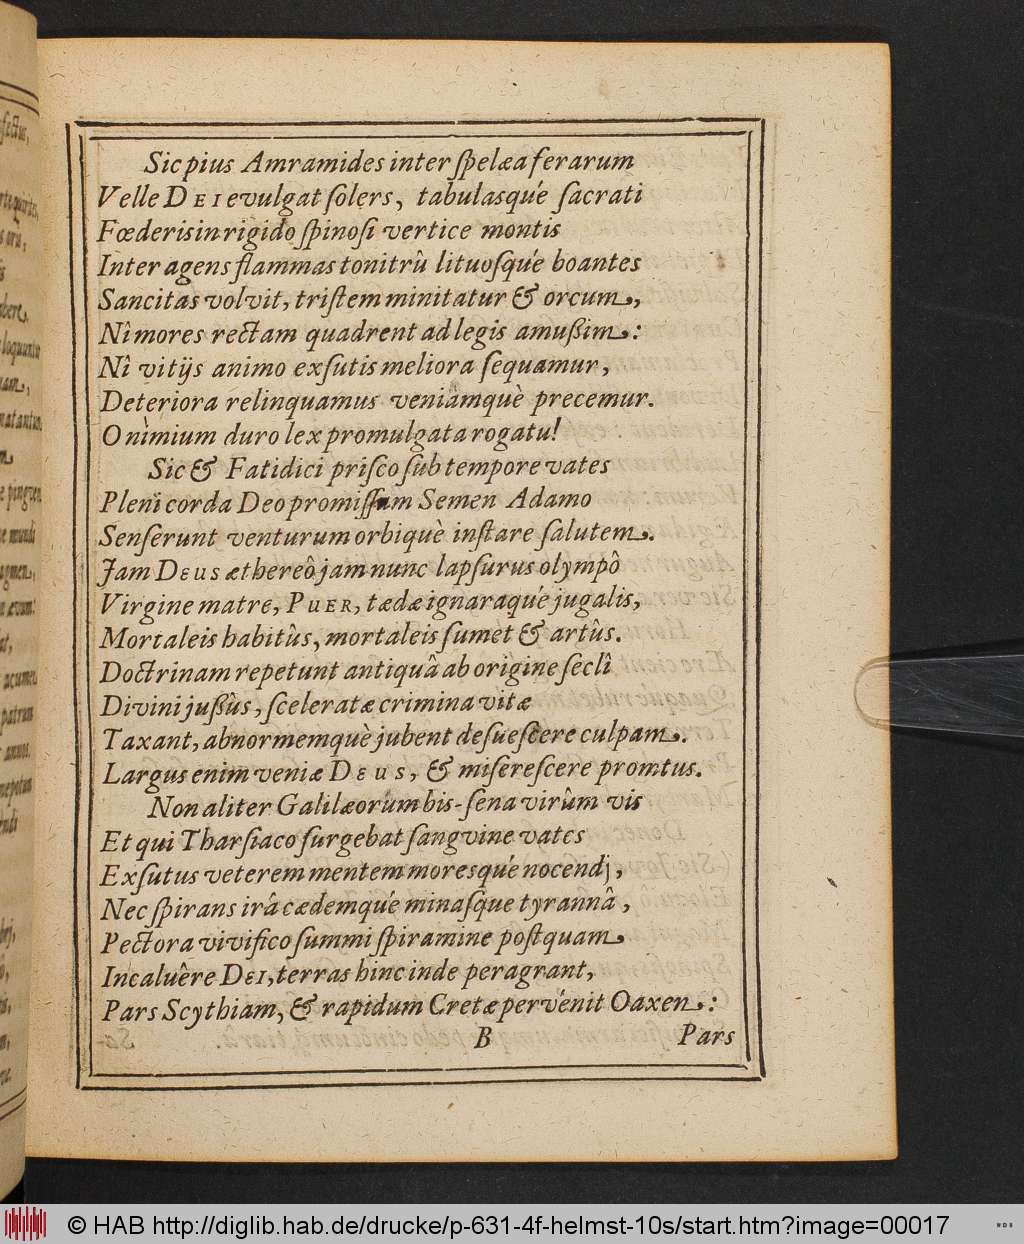 Sic pius Amramides inter ſpelæa ferarum
Velle DEI evulgat ſolers, tabulasqué ſacrati
Fœderis in rigido ſpinoſi vertice montis
Inter agens flammas tonitrû lituosqué boantes
Sancitas volvit, triſtem minitatur & orcum,
Nî mores rectam quadrent ad legis amußim:
Nî vitijs animo exſutis meliora ſequamur,
Deteriora relinquamus veniàmquè precemur.
O nìmium duro lex promulgata rogatu!
Sic & Fatidici priſco ſub tempore vates
Pleni corda Deo promiſſum Semen Adamo
Senſerunt venturum orbiquè inſtare ſalutem.
Jam DEUS æthereô jam nunc lapſurus olympô
Virgine matre, PUER, tædæ ignaraqué jugalis,
Mortaleis habitûs, mortaleis ſumet & artûs.
Doctrinam repetunt antiquâ ab origine ſeclî
Divini jußûs, ſceleratæ crimina vitæ
Taxant, abnormemquè jubent deſueſcere culpam.
Largus enim veniæ DEUS, & miſereſcere promtus.
Non aliter Galilæorum bis-ſena virûm vis
Et qui Tharſiaco ſurgebat ſangvine vates
Exſutus veterem mentem moresqué nocendj,
Nec ſpirans irâ cædemqué minaſque tyrannâ,
Pectora vivifico ſummi ſpiramine poſtquam
Incaluêre DEI, terras hinc inde peragrant,
Pars Scythiam, & rapidum Cretæ pervénit Oaxen:
B Pars
fectus,
mundi
patrum
© HAB http://diglib.hab.de/drucke/p-631-4f-helmst-10s/start.htm?image=00017